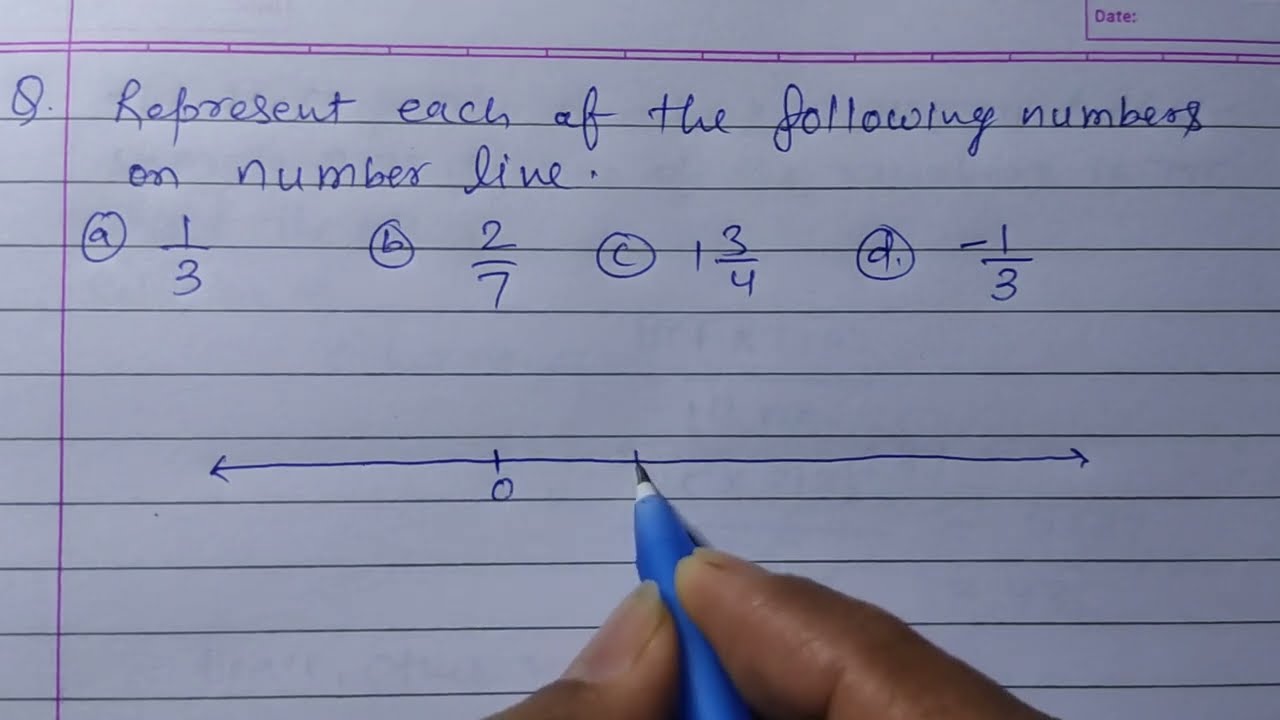 Date:
Q. Represent each of the following numbers
on number line.
(a) 1/3 (b) 2/7 (c) 1 3/4 (d.) -1/3
0